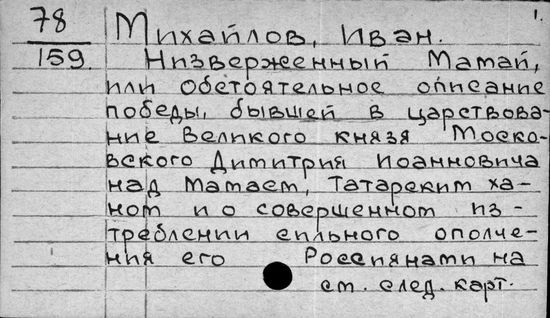 78 Михайлов, Иван. 1.
159. Низверженный Мамай,
или обстоятельное описание
победы, бывшей в царствова-
ние Великого князя Моско-
вского Димитрия Иоанновича
над Мамаем, Татарским ха-
ном и о совершенном из-
треблении сильного ополче-
ния его Россиянами на
см. след. карт.